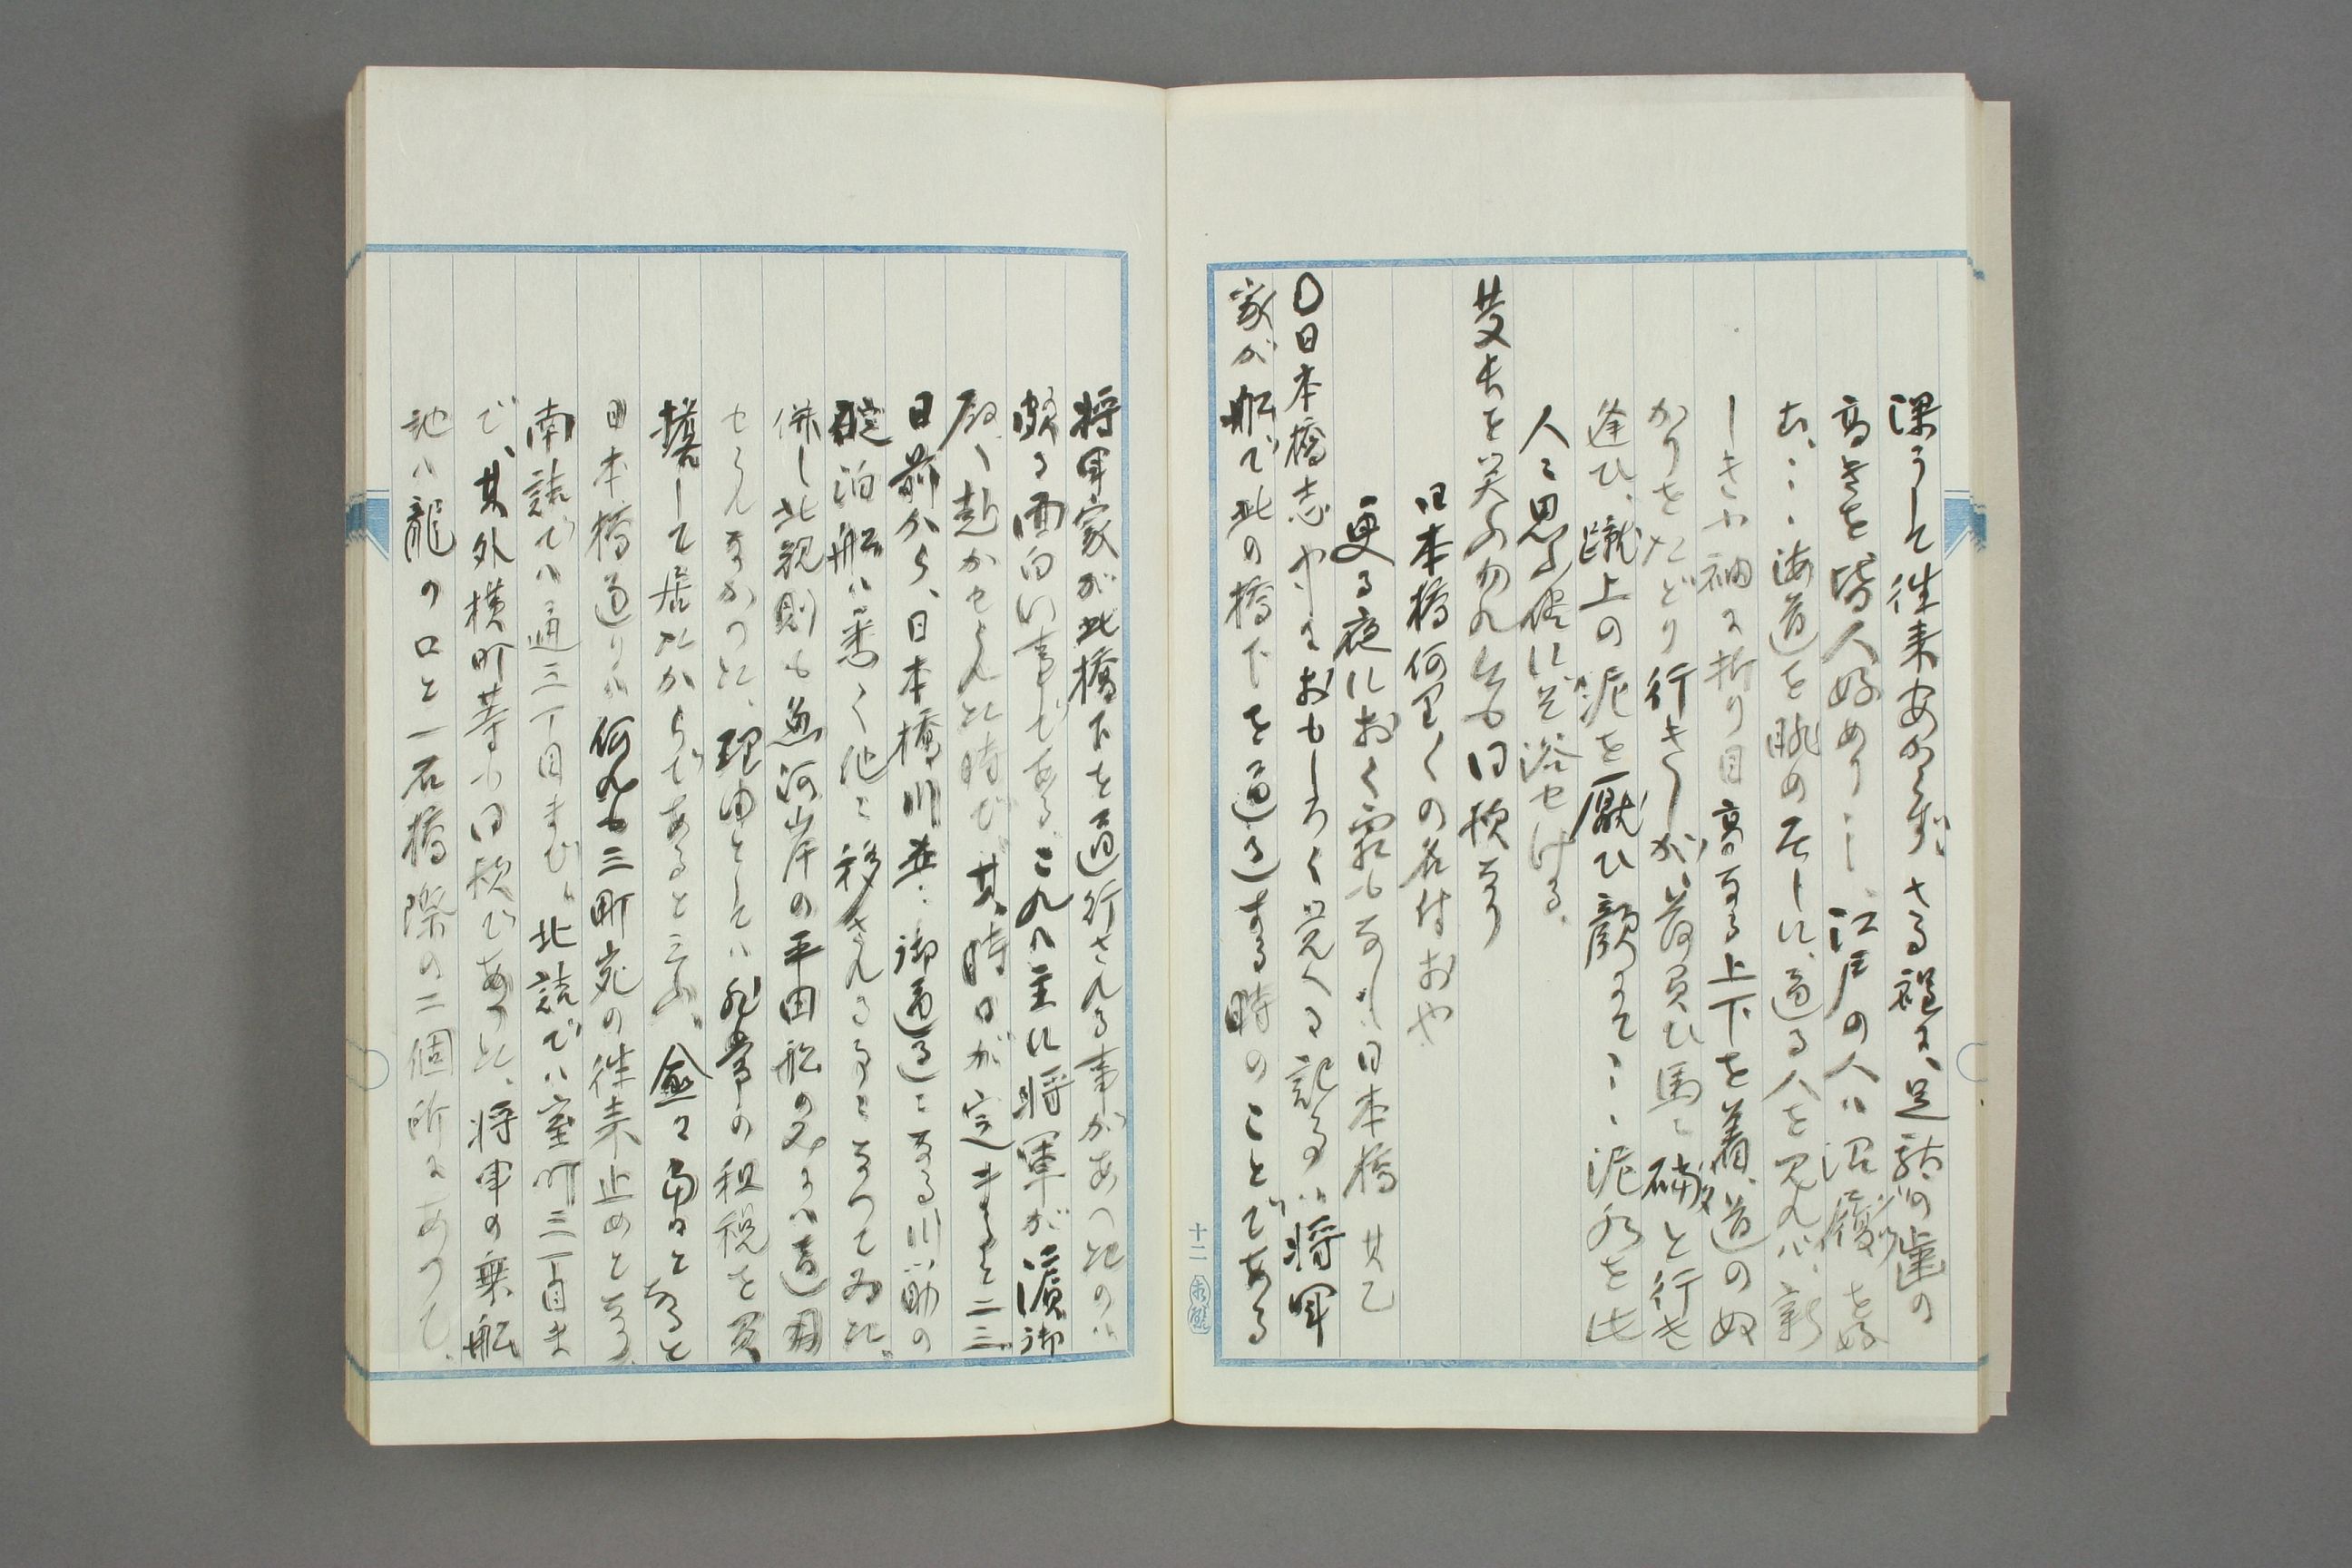 深うして往来安からず、さる程に、足駄の歯の
高きを皆人好めり…、江戸の人は沼履を好
む、…海道を眺め居しに、通る人を見れば、新
しき小袖に折り目高なる上下を着、道のぬ
かりをたどり行きしが、荷負ひ馬に礑と行き
逢ひ、蹴上の泥を厭ひ顔にて…泥水を此
人に思ふ儘にぞ浴せける。
を笑ふ勿れ今も同様なり
日本橋何里〱の名付おや
更る夜におく霜もなし日本橋 其乙
〇日本橋志やにおもしろく覚へる記事は将軍
家が船で此の橋下を通過する時のことである
将軍家が此橋下を通行される事があつたのは
頗る面白い事である、これは主に将軍が濱御
殿へ赴かせられた時で、其時日が定まると二三
日前から、日本橋川並に御通過になる川筋の
碇泊船は悉く他に移されることになつてゐた。
併し此規則も魚河岸の平田船のみには適用
せられなかつた、理由としては非常の租税を負
擔して居たからであると云ふ。愈々当日となると
日本橋通りは何れも三町宛の往来止めとなる、
南詰では通三丁目まで、北詰では室町三丁目ま
で、其外横町等も同様であつた、将軍の乗船
地は龍の口と一石橋際の二個所にあつて、
十二